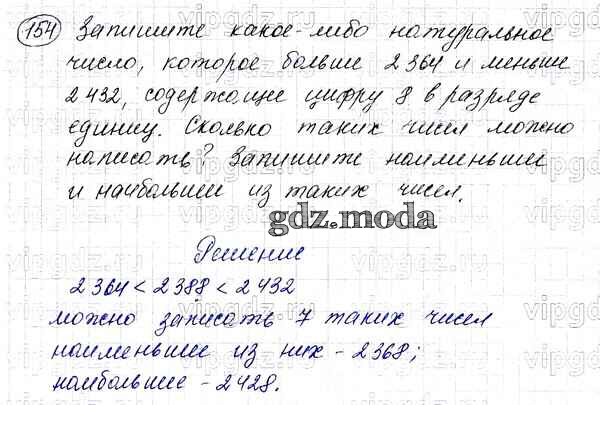 154 Запишите какое-либо натуральное
число, которое больше 2 364 и меньше
2 432, содержащие цифру 8 в разряде
единиц. Сколько таких чисел можно
написать? Запишите наименьшее
и наибольшее из таких чисел.
gdz.moda
Решение
2 364 < 2 388 < 2 432
можно записать 7 таких чисел
наименьшее из них - 2368;
наибольшее - 2428.